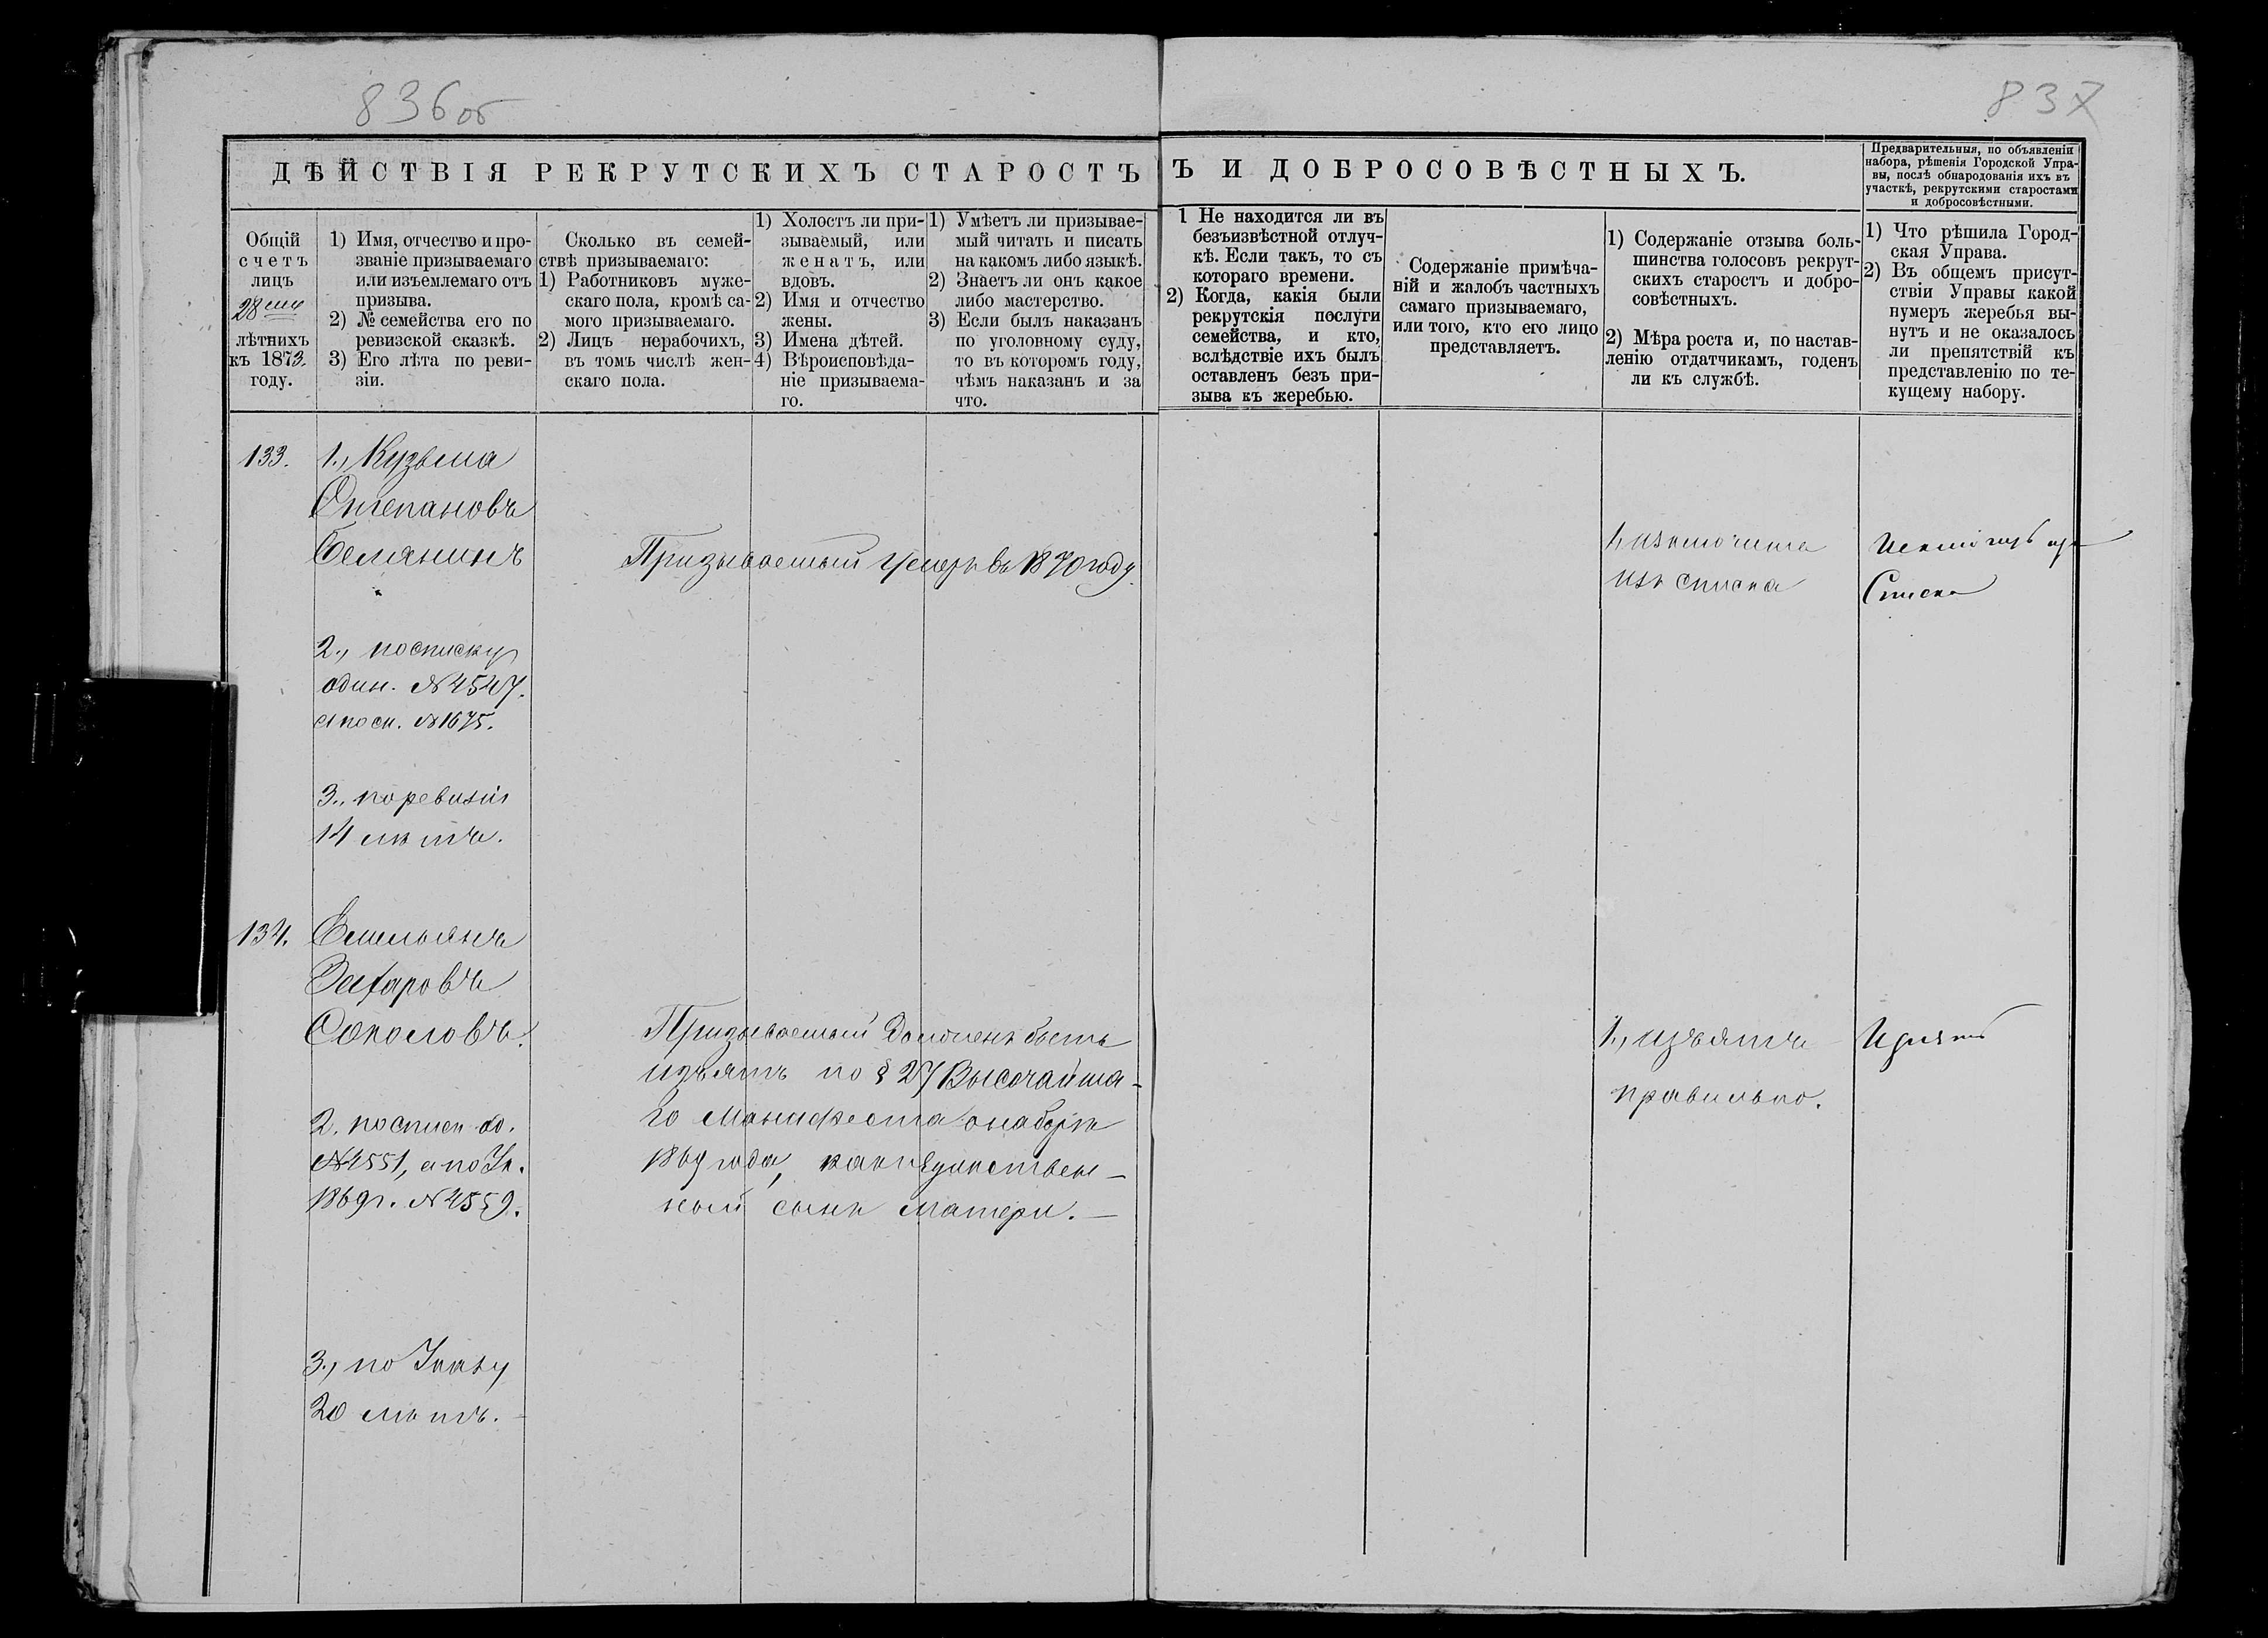 836 об
837
ДѢЙСТВІЯ РЕКРУТСКИХЪ СТАРОСТЪ
Ъ И ДОБРОСОВѢСТНЫХЪ.
Предварительныя, по объявленіи
набора, рѣшенія Городской Упра-
вы, послѣ обнародованія ихъ въ
участкѣ, рекрутскими старостами
и добросовѣстными.
Общій
счетъ
лицъ
28
лѣтнихъ
къ 1873.
году.
1) Имя, отчество и про-
званіе призываемаго
или изъемлемаго отъ
призыва.
2) № семейства его по
ревизской сказкѣ.
3) Его лѣта по реви-
зіи.
Сколько въ семей-
ствѣ призываемаго:
1) Работниковъ муже-
скаго пола, кромѣ са-
мого призываемаго.
2) Лицъ нерабочихъ,
въ томъ числѣ жен-
скаго пола.
1) Холостъ ли при-
зываемый, или
женатъ, или
вдовъ.
2) Имя и отчество
жены.
3) Имена дѣтей.
4) Вѣроисповѣда-
ніе призываема-
го.
1) Умѣетъ ли призывае-
мый читать и писать
на какомъ либо языкѣ.
2) Знаетъ ли онъ какое
либо мастерство.
3) Если былъ наказанъ
по уголовному суду,
то въ которомъ году,
чѣмъ наказанъ и за
что.
1 Не находится ли въ
безъизвѣстной отлуч-
кѣ. Если такъ, то съ
котораго времени.
2) Когда, какія были
рекрутскія послуги
семейства, и кто,
вслѣдствіе ихъ былъ
оставленъ безъ при-
зыва къ жеребью.
Содержаніе примѣча-
ній и жалобъ частныхъ
самаго призываемаго,
или того, кто его лицо
представляетъ.
1) Содержаніе отзыва боль-
шинства голосовъ рекрут-
скихъ старостъ и добро-
совѣстныхъ.
2) Мѣра роста и, по настав-
ленію отдатчикамъ, годенъ
ли къ службѣ.
1) Что рѣшила Город-
ская Управа.
2) Въ общемъ присут-
ствіи Управы какой
нумеръ жеребья вы-
нутъ и не оказалось
ли препятствій къ
представленію по те-
кущему набору.
133.
1., Кузьма
Степановъ
Белянинъ
2., по списку
один. № 4547.
а по ск. № 1675.
3., по ревизіи
14 лѣтъ.
Призываемый умеръ въ 1870 году.
1, исключить
изъ списка
Списка
134.
Емельянъ
Захаровъ
Соколовъ.
2. по списк. од.
№ 4551, а по Ук.
1869 г. № 4559.
3., по Указу
20 лѣтъ.
Призываемый долженъ быть
изъятъ по § 27 Высочайша-
го Манифеста о наборѣ
1869 года, какъ единствен-
ный сынъ матери.
1., изъятъ
правильно.
Изъять